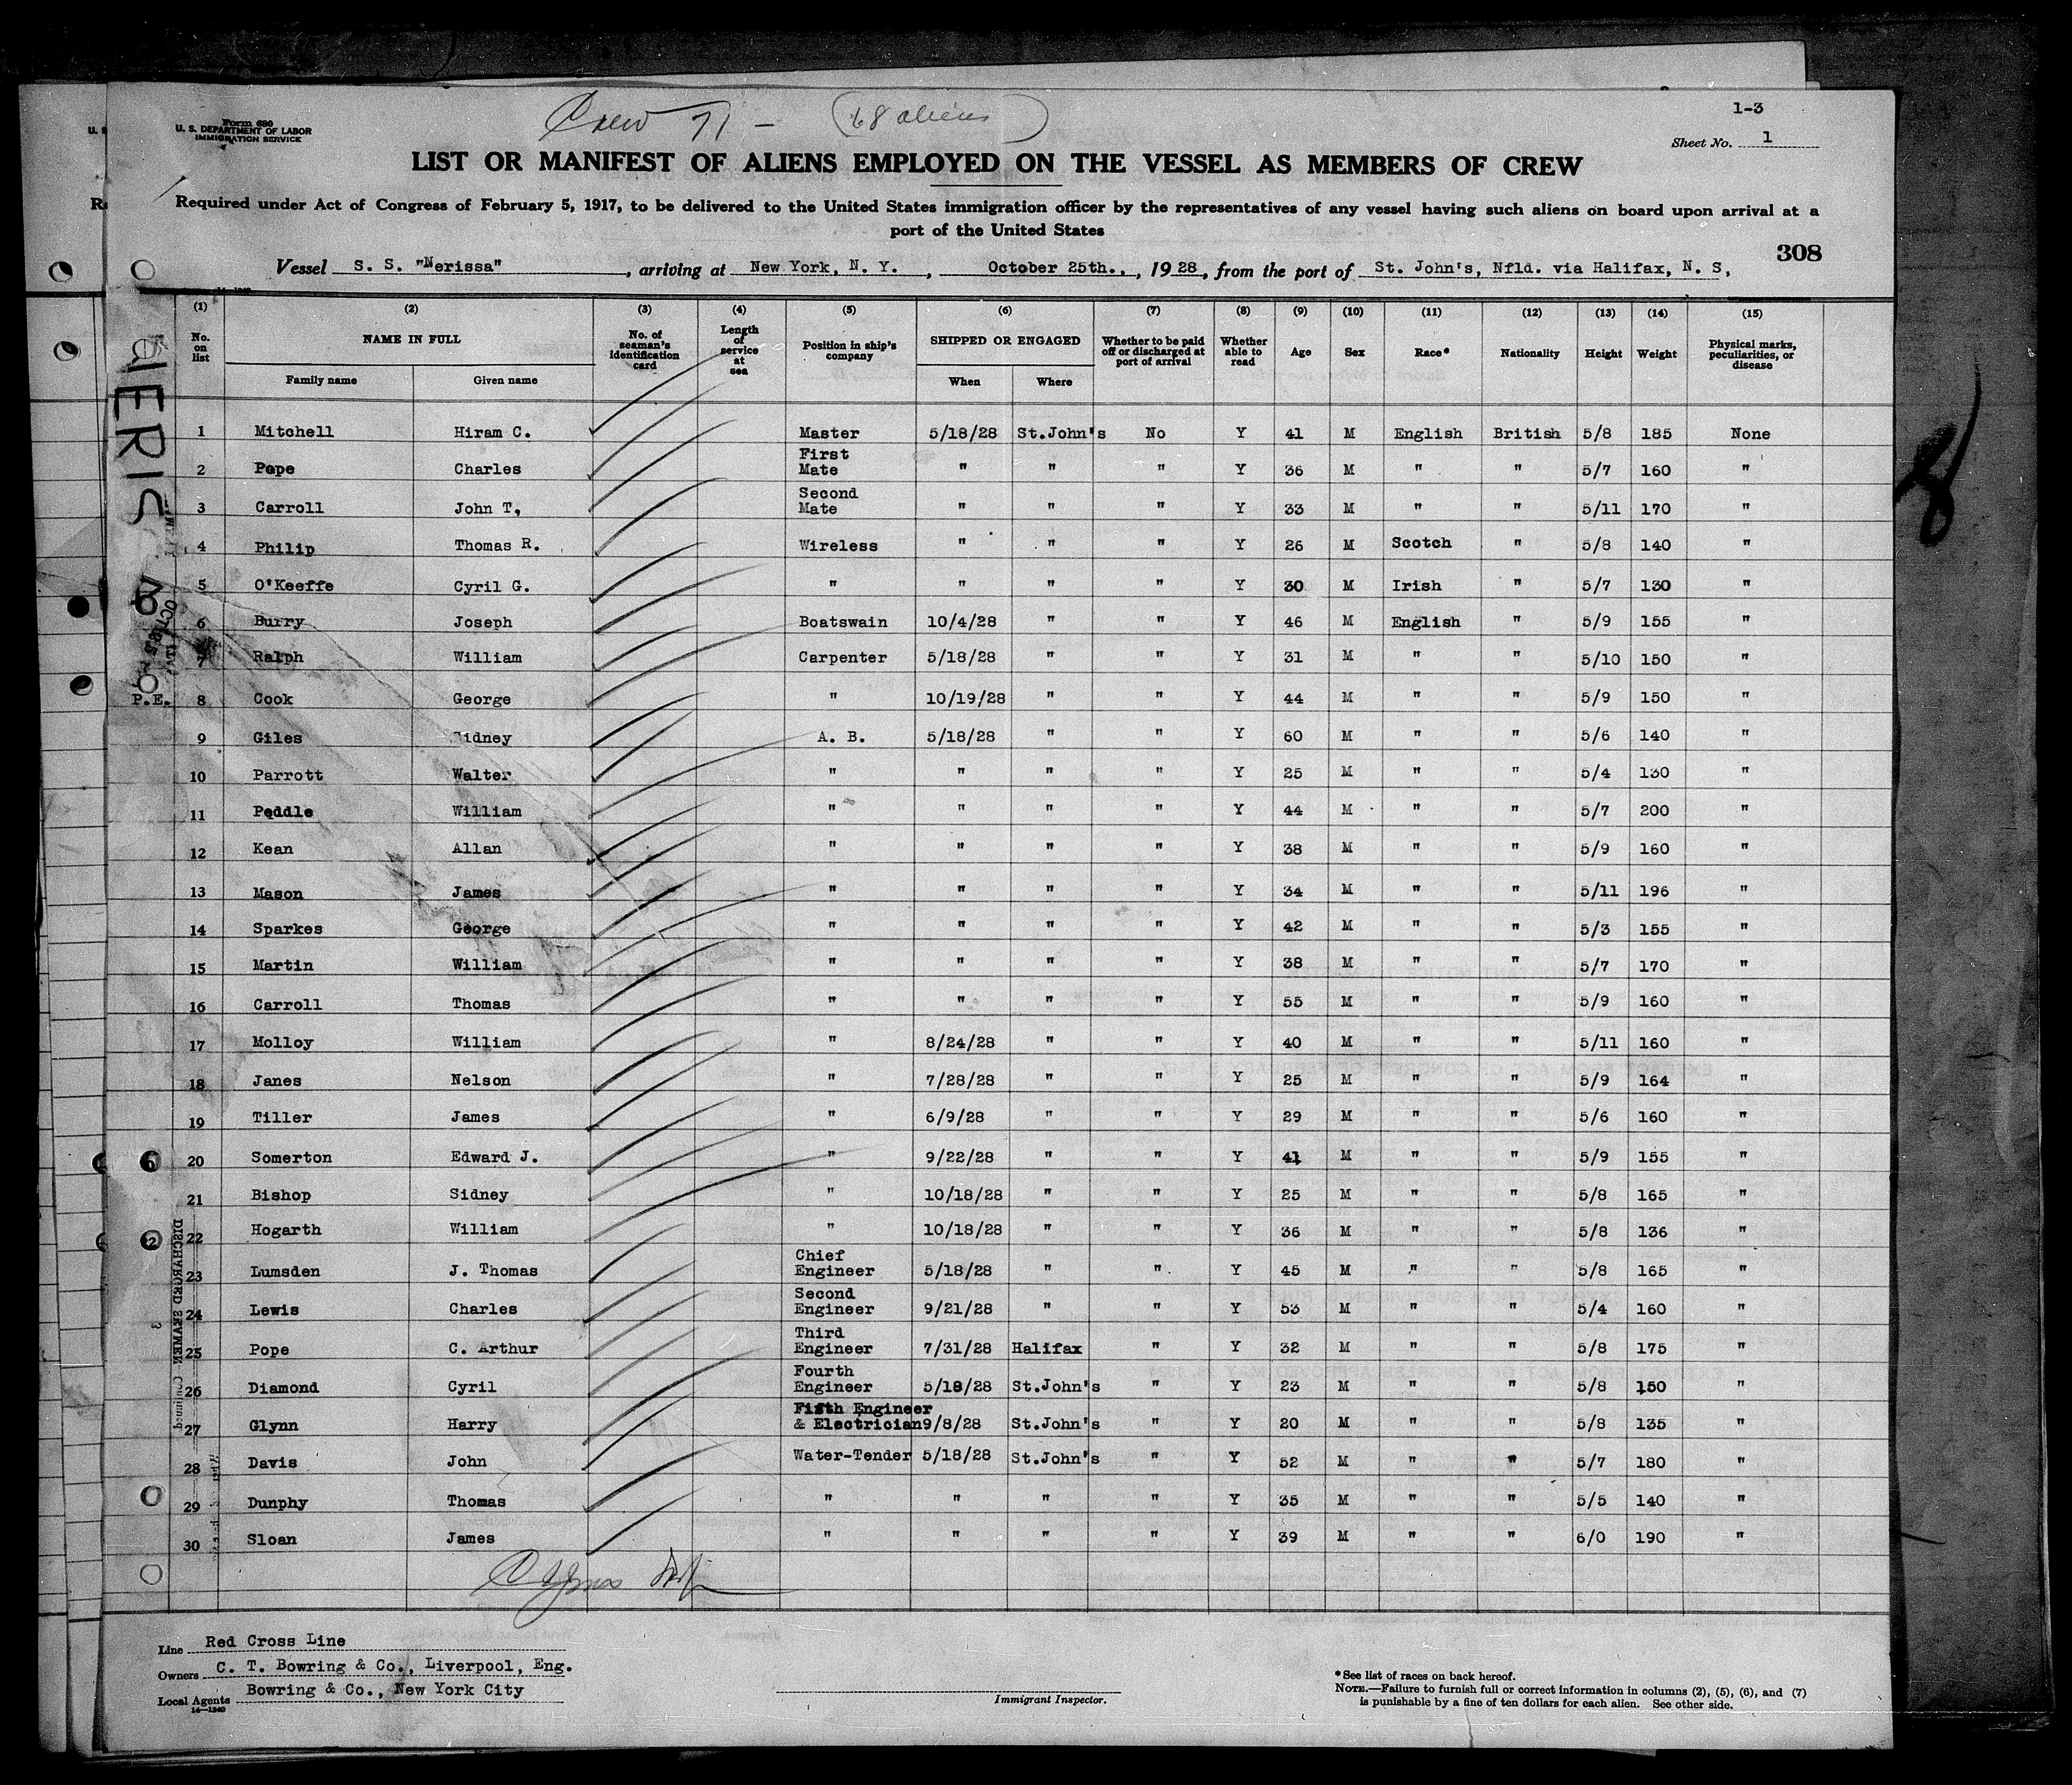 Crew 71 - (68 aliens)
1-3
Form 680
U. S. DEPARTMENT OF LABOR
IMMIGRATION SERVICE
Sheet No. 1
LIST OR MANIFEST OF ALIENS EMPLOYED ON THE VESSEL AS MEMBERS OF CREW
Required under Act of Congress of February 5, 1917, to be delivered to the United States immigration officer by the representatives of any vessel having such aliens on board upon arrival at a
port of the United States
308
Vessel S. S. "Nerissa", arriving at New York, N. Y., October 25th., 1928, from the port of St. John's, Nfld. via Halifax, N. S,
(1) (2) (3) (4) (5) (6) (7) (8) (9) (10) (11) (12) (13) (14) (15)
No. on list NAME IN FULL No. of seaman's identification card Length of service at sea Position in ship's company SHIPPED OR ENGAGED Whether to be paid off or discharged at port of arrival Whether able to read Age Sex Race* Nationality Height Weight Physical marks, peculiarities, or disease
Family name Given name When Where
1 Mitchell Hiram C. Master 5/18/28 St.John's No Y 41 M English British 5/8 185 None
2 Pope Charles First Mate " " " Y 36 M " " 5/7 160 "
3 Carroll John T, Second Mate " " " Y 33 M " " 5/11 170 "
4 Philip Thomas R. Wireless " " " Y 26 M Scotch " 5/8 140 "
5 O'Keeffe Cyril G. " " " " Y 30 M Irish " 5/7 130 "
6 Burry Joseph Boatswain 10/4/28 " " Y 46 M English " 5/9 155 "
7 Ralph William Carpenter 5/18/28 " " Y 31 M " " 5/10 150 "
P.E. 8 Cook George " 10/19/28 " " Y 44 M " " 5/9 150 "
9 Giles Sidney A. B. 5/18/28 " " Y 60 M " " 5/6 140 "
10 Parrott Walter " " " " Y 25 M " " 5/4 130 "
11 Peddle William " " " " Y 44 M " " 5/7 200 "
12 Kean Allan " " " " Y 38 M " " 5/9 160 "
13 Mason James " " " " Y 34 M " " 5/11 196 "
14 Sparkes George " " " " Y 42 M " " 5/3 155 "
15 Martin William " " " " Y 38 M " " 5/7 170 "
16 Carroll Thomas " " " " Y 55 M " " 5/9 160 "
17 Molloy William " 8/24/28 " " Y 40 M " " 5/11 160 "
18 Janes Nelson " 7/28/28 " " Y 25 M " " 5/9 164 "
19 Tiller James " 6/9/28 " " Y 29 M " " 5/6 160 "
20 Somerton Edward J. " 9/22/28 " " Y 41 M " " 5/9 155 "
21 Bishop Sidney " 10/18/28 " " Y 25 M " " 5/8 165 "
22 Hogarth William " 10/18/28 " " Y 36 M " " 5/8 136 "
23 Lumsden J. Thomas Chief Engineer 5/18/28 " " Y 45 M " " 5/8 165 "
24 Lewis Charles Second Engineer 9/21/28 " " Y 53 M " " 5/4 160 "
25 Pope C. Arthur Third Engineer 7/31/28 Halifax " Y 32 M " " 5/8 175 "
26 Diamond Cyril Fourth Engineer 5/18/28 St.John's " Y 23 M " " 5/8 150 "
27 Glynn Harry Fifth Engineer & Electrician 9/8/28 St.John's " Y 20 M " " 5/8 135 "
28 Davis John Water-Tender 5/18/28 St.John's " Y 52 M " " 5/7 180 "
29 Dunphy Thomas " " " " Y 35 M " " 5/5 140 "
30 Sloan James " " " " Y 39 M " " 6/0 190 "
Line Red Cross Line
Owners C. T. Bowring & Co., Liverpool, Eng.
Local Agents Bowring & Co., New York City
14—1240
Immigrant Inspector.
*See list of races on back hereof.
NOTE.—Failure to furnish full or correct information in columns (2), (5), (6), and (7)
is punishable by a fine of ten dollars for each alien. See other side.
DISCHARGED SEAMEN Continued